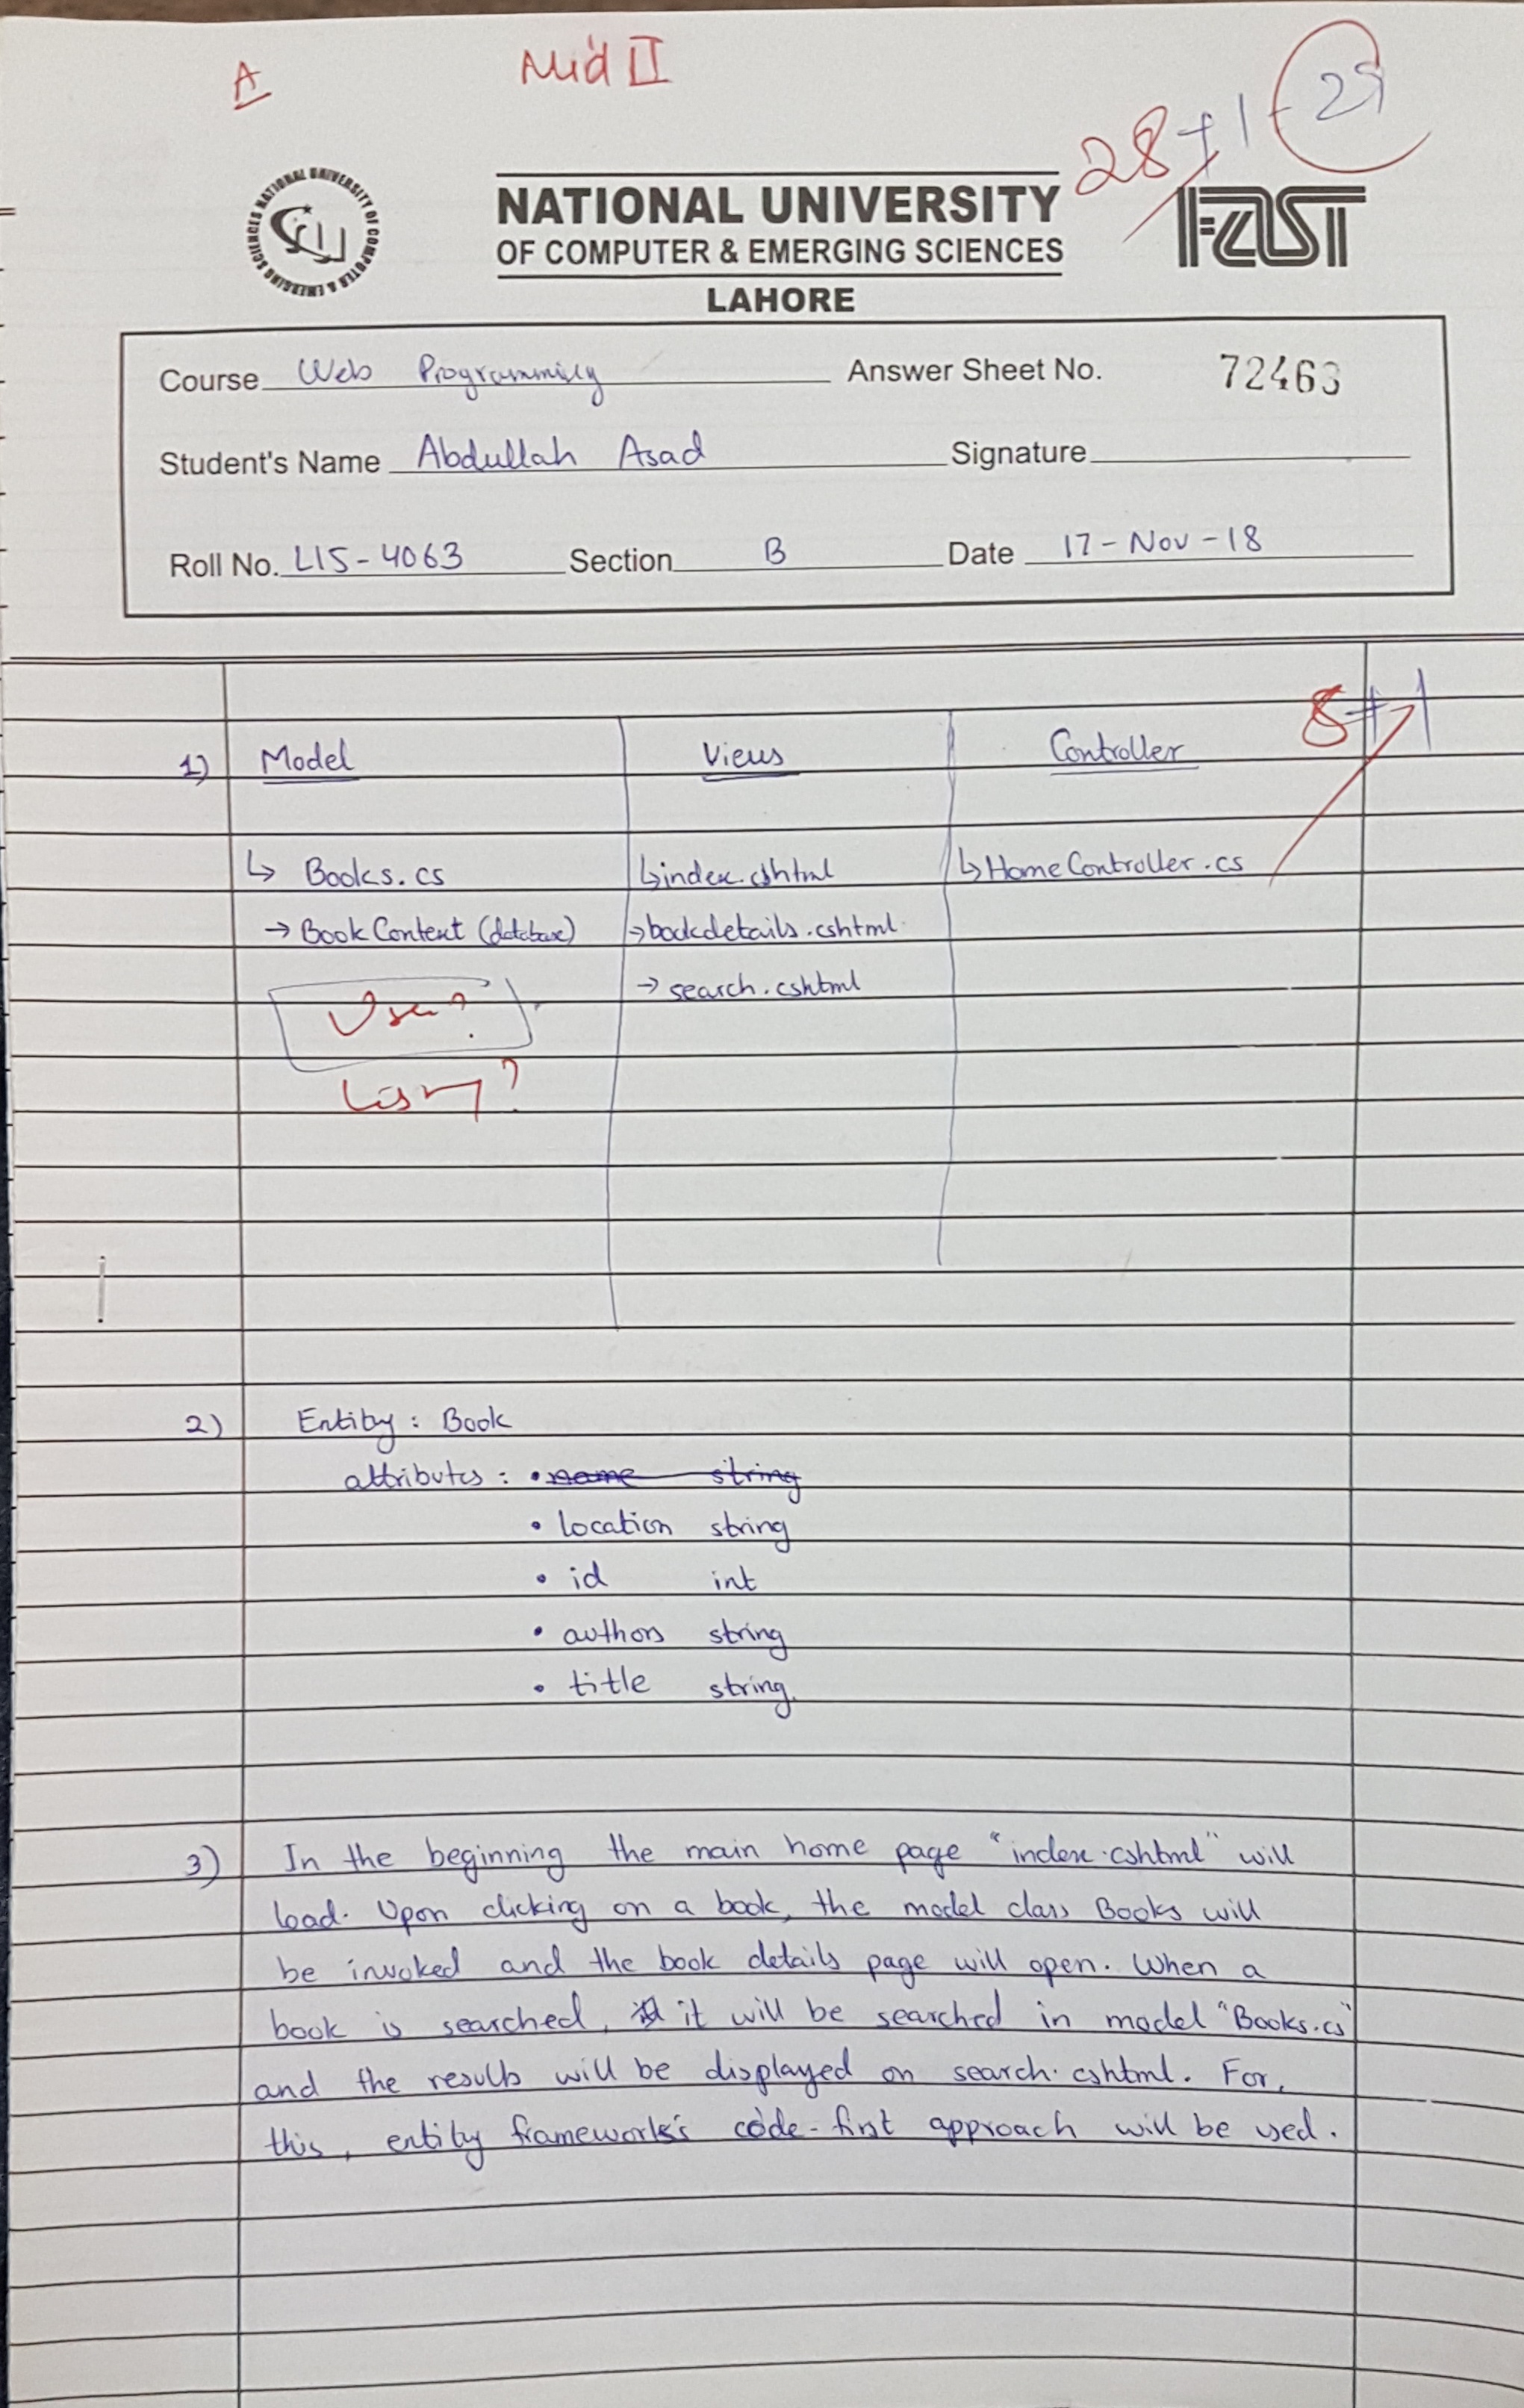 A
Mid II
28 + 1 29
NATIONAL UNIVERSITY OF COMPUTER & EMERGING SCIENCES
NATIONAL UNIVERSITY
OF COMPUTER & EMERGING SCIENCES
LAHORE
FAST
Course Web Programming Answer Sheet No. 72463
Student's Name Abdullah Asad Signature
Roll No. L15-4063 Section B Date 17-Nov-18
8+1
1) Model Views Controller
↳ Books.cs ↳index.cshtml ↳HomeController.cs
→ Book Content (database) →bookdetails.cshtml
→ search.cshtml
User?
2) Entity : Book
attributes : • name string
• location string
• id int
• authors string
• title string
3) In the beginning the main home page "index.cshtml" will
load. Upon clicking on a book, the model class Books will
be invoked and the book details page will open. When a
book is searched, it will be searched in model "Books.cs"
and the results will be displayed on search.cshtml. For
this, entity framework's code-first approach will be used.